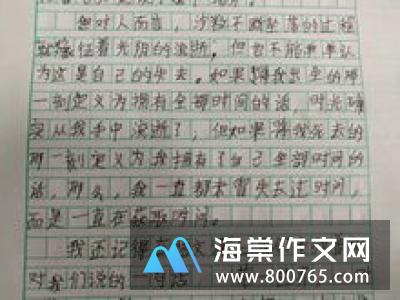 但对人而言，沙数不断坠落的过程
象征着光阴的流逝，但也不能单单
认为这是自己的失去。如果将我出生的那
一刻定义为拥有全部时间的话，时光确
实从我手中流逝了，但如果将我死去的
那一刻定义为我拥有了自己全部时间的
话，那么，我一直都未曾失去过时间，
而是一直在获取时间。
我还记得
对我们说的一句话
海棠作文网
www.800765.com